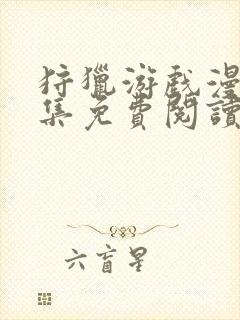 狩獵游戲漫
集免費閱讀
六盲星